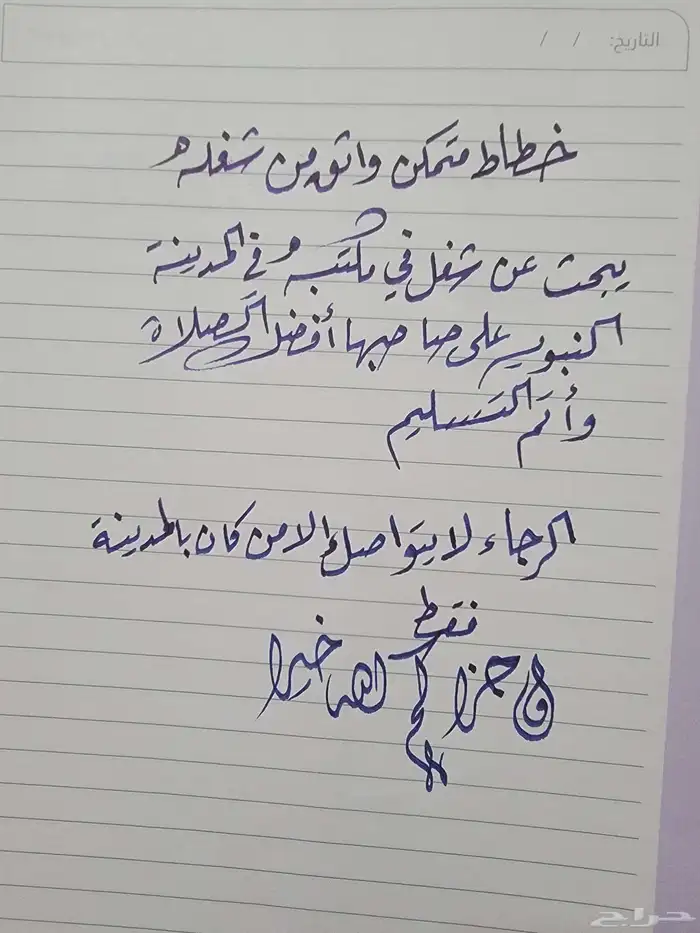 التاريخ: / /
خطاط متمكن واثق من شغله
يبحث عن شغل في مكتبه في المدينة
النبويه على صاحبها أفضل الصلاة
وأتم التسليم
الرجاء لا يتواصل إلا من كان بالمدينة
فقط
وجزاكم الله خيرا
حراج